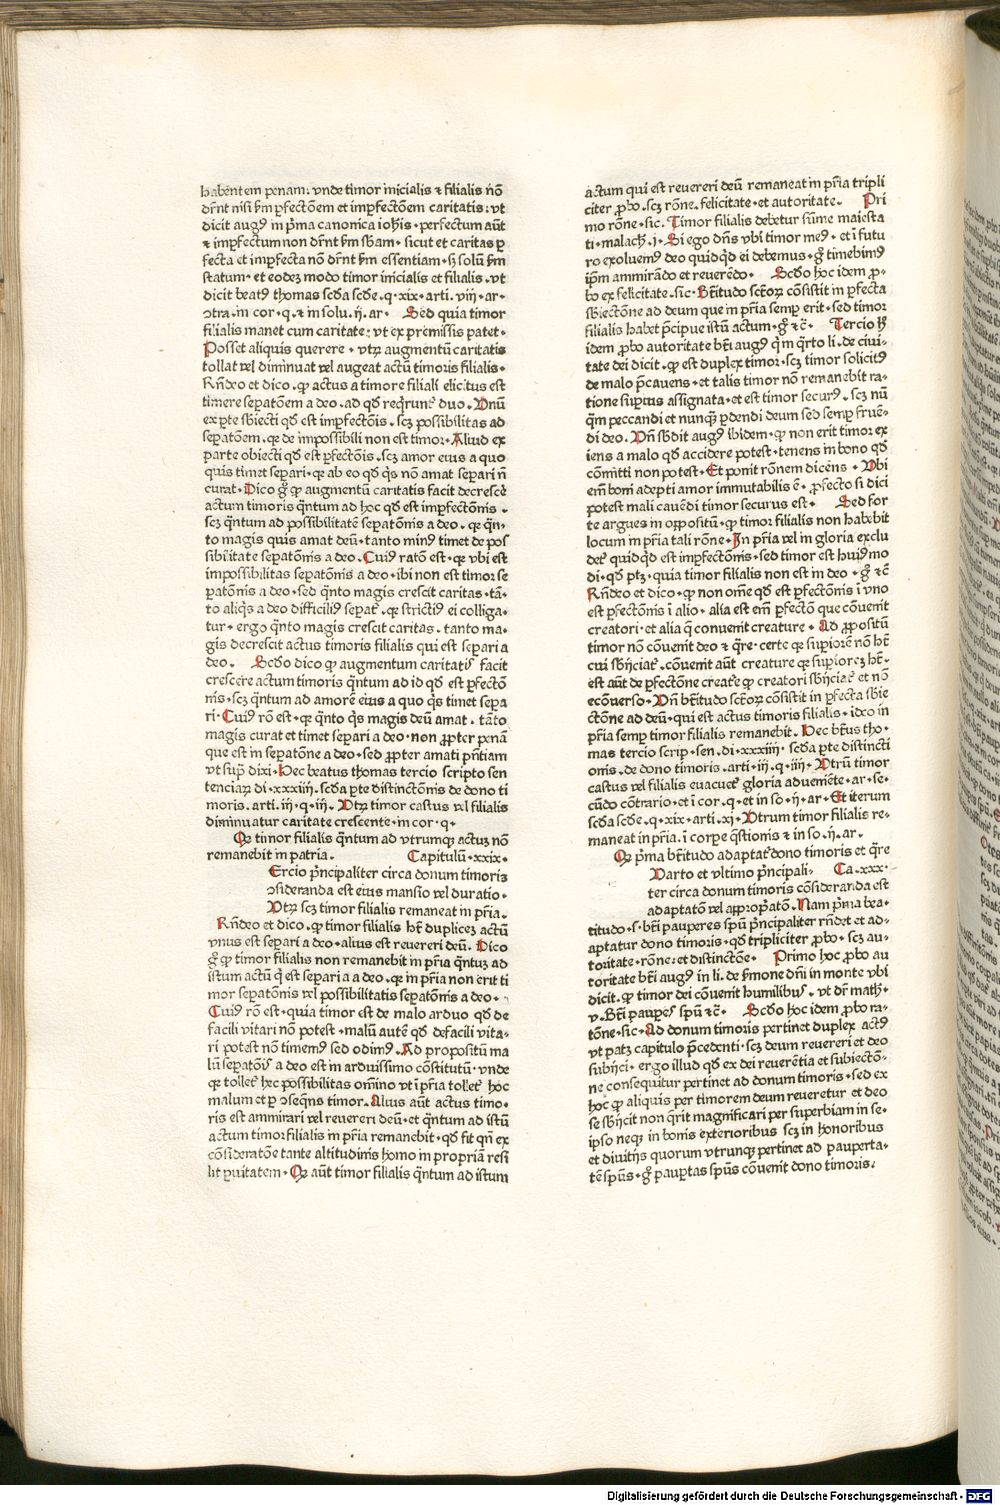 habentem penam: vnde timor inicialis ⁊ filialis nō
dr̄nt nisi ẜm ꝑfectōem et imꝑfectōem caritatis: vt
dicit augꝰ in p̄ma canonica iohīs · perfectum aūt
⁊ imꝑfectum non dr̄nt ẜm sb̄am · sicut et caritas ꝑ
fecta et imꝑfecta nō dr̄nt ẜm essentiam · ꝭ solū ẜm
statum · et eodeꝫ modo timor inicialis et filialis · vt
dicit beatꝰ thomas scd̄a scd̄e · q · xix · arti · viij · ar ·
ↄtra · in cor · q · ⁊ in solu · ij · ar · Sed quia timor
filialis manet cum caritate: vt ex premissis patet ·
Posset aliquis querere · vtꝝ augmentū caritatis
tollat vel diminuat vel augeat actū timoris filialis ·
Rn̄deo et dico · ꝙ actus a timore filiali elicitus est
timere seꝑatōem a deo · ad qd̄ reqͥrunt᷑ duo · Vnū
ex ꝑte sb̄iecti qd̄ est imꝑfectōis · scꝫ possibilitas ad
seꝑatōem · qꝛ de impossibili non est timor · Aliud ex
parte obiecti qd̄ est ꝑfectōis · scꝫ amor eius a quo
quis timet seꝑari · qꝛ ab eo qd̄ qͥs nō amat seꝑari nō
curat · Dico gͦ ꝙ augmentū caritatis facit decrescē
actum timoris qͣntum ad hoc qd̄ est imꝑfectōnis ·
scꝫ qͣntum ad possibilitatē seꝑatōnis a deo · qꝛ qͣn-
to magis quis amat deū · tanto minꝰ timet de pos
sibilitate seꝑatōnis a deo · Cuiꝰ ratō est · qꝛ vbi est
impossibilitas seꝑatōnis a deo · ibi non est timor se
ꝑatōnis a deo · sed qͣnto magis crescit caritas · tā-
to aliqͥs a deo difficiliꝰ seꝑat᷑ · qꝛ strictiꝰ ei colliga-
tur · ergo qͣnto magis crescit caritas · tanto ma-
gis decrescit actus timoris filialis qui est seꝑari a
deo · Scd̄o dico ꝙ augmentum caritatis facit
crescere actum timoris qͣntum ad id qd̄ est ꝑfectō
nis · scꝫ qͣntum ad amorē eius a quo qͥs timet sepa
ri · Cuiꝰ rō est · qꝛ qͣnto qͥs magis deū amat · tāto
magis curat et timet seꝑari a deo · non ꝓpter penā
que est in seꝑatōne a deo · sed ꝓpter amati pn̄tiam
vt supͣ dixi · Hec beatus thomas tercio scripto sen
tenciaꝝ di · xxxiiij · scd̄a ꝑte distinctōnis de dono ti
moris · arti · iij · q · iij · Vtꝝ timor castus vel filialis
diminuatur caritate crescente · in cor · q ·
Qꝙ timor filialis qͣntum ad vtrumqꝫ actuꝫ nō
remanebit in patria · Capitulū · xxix ·
Ercio pͥncipaliter circa donum timoris
ↄsideranda est eius mansio vel duratio ·
Vtꝝ scꝫ timor filialis remaneat in pr̄ia ·
Rn̄deo et dico · ꝙ timor filialis hꝫ duplicem actū
vnus est seꝑari a deo · alius est reuereri deū · Dico
gͦ ꝙ timor filialis non remanebit in pr̄ia qͣntuꝫ ad
istum actū qͥ est seꝑari a a deo · qꝛ in pr̄ia non erit ti
mor seꝑatōnis vel possibilitatis seꝑatōnis a deo ·
Cuiꝰ rō est · quia timor est de malo arduo qd̄ de
facili vitari nō potest · malū autē qd̄ defacili vita-
ri potest nō timemꝰ sed odimꝰ · Ad propositū ma
lū seꝑatōis a deo est in arduissimo cōstitutū · vnde
qꝛ tollet᷑ hec possibilitas om̄ino vt ī pr̄ia tollet᷑ hoc
malum et ꝑ ↄseqn̄s timor · Alius aūt actus timo-
ris est ammirari vel reuereri deū · et qͣntum ad istū
actum timor filialis in pr̄ia remanebit · qd̄ fit qn̄ ex
cōsideratōe tante altitudinis homo in propriā resi
lit ꝑuitatem · Qꝙ aūt timor filialis qͣntum ad istum
actum qui est reuereri deū remaneat in pr̄ia tripli
citer ꝓbo · scꝫ rōne · felicitate · et autoritate · Pri
mo rōne · sic · Timor filialis debetur sūme maiesta
ti · malach · j · Si ego dn̄s vbi timor meꝰ · et ī futu
ro exoluemꝰ deo quidqͥd ei debemus · gͦ timebimꝰ
ip̄m ammirādo et reuerēdo · Scd̄o hoc idem ꝓ-
bo ex felicitate · sic · Bt̄itudo sctōꝝ cōsistit in ꝑfecta
sb̄iectōne ad deum que in pr̄ia semꝑ erit · sed timor
filialis habet pͥcipue istū actum · gͦ ⁊c̄ · Tercio hͦ
idem ꝓbo autoritate bt̄i augꝰ qͥ in qͣrto li · de ciui-
tate dei dicit · ꝙ est duplex timor · scꝫ timor solicitꝰ
de malo p̄cauens · et talis timor nō remanebit ra-
tione suꝑius assignata · et est timor securꝰ · scꝫ nū
qͣm peccandi et nunqͣꝫ ꝑdendi deum sed semꝑ fruē-
di deo · Vn̄ sb̄dit augꝰ ibidem · ꝙ non erit timor ex
iens a malo qd̄ accidere potest · tenens in bono qd̄
cōmitti non potest · Et ponit rōnem dicens · Vbi
em̄ boni adepti amor immutabilis ē · ꝓfecto si dici
potest mali cauēdi timor securus est · Sed for
te argues in oppositū · ꝙ timor filialis non habebit
locum in pr̄ia tali rōne · In pr̄ia vel in gloria exclu
det᷑ quidqͥd est imꝑfectōnis · sed timor est huiꝰmo
di · qd̄ ptꝫ · quia timor filialis non est in deo · gͦ ⁊c̄
Rn̄deo et dico · ꝙ non om̄e qd̄ est ꝑfectōnis ī vno
est ꝑfectōnis ī alio · alia est em̄ ꝑfectō que cōuenit
creatori · et alia q̄ conuenit creature · Ad ꝓpositū
timor nō cōuenit deo ⁊ qͣre · certe qꝛ suꝑiorē nō hꝫ
cui sb̄ijciat᷑ · cōuenit aūt creature qꝛ suꝑiorez hꝫ ·
est aūt de ꝑfectōne creat᷑e ꝙ creatori sb̄ijciat᷑ et nō
ecōuerso · Vn̄ bt̄itudo sctōꝝ cōsistit in ꝑfecta sb̄ie
ctōne ad deū · qui est actus timoris filialis · ideo in
pr̄ia semꝑ timor filialis remanebit · Hec bt̄us tho-
mas tercio scrip · sen · di · xxxiiij · scd̄a ꝑte distincti
onis · de dono timoris · arti · iij · q · iiij · Vtrū timor
castus vel filialis euacuet᷑ gloria adueniēte · ar · se-
cūdo cōntrario · et ī cor · q · et in so · ij · ar · Et iterum
scd̄a scd̄e · q · xix · arti · xj · Vtrum timor filialis re-
maneat in pr̄ia · ī corpe qͥstionis ⁊ in so · ij · ar ·
Qꝙ p̄ma bt̄itudo adaptat᷑ dono timoris et qͣre
Varto et vltimo pͥncipali- Ca · xxx ·
ter circa donum timoris cōsideranda est
adaptatō vel appropͥatō · Nam p̄ma bea-
titudo · s · bt̄i pauperes spū pͥncipaliter rn̄det et ad-
aptatur dono timoris · qd̄ tripliciter ꝓbo · scꝫ au-
toritate · rōne · et distinctōne · Primo hoc ꝓbo au
toritate bt̄i augꝰ in li · de ẜmone dn̄i in monte vbi
dicit · ꝙ timor dei cōuenit humilibus · vt dr̄ math ·
v · Bt̄i pauꝑes spū ⁊c̄ · Scd̄o hoc idem ꝓbo ra-
tōne · sic · Ad donum timoris pertinet duplex actꝰ
vt patꝫ capitulo p̄cedenti · scꝫ deum reuereri et deo
subijci · ergo illud qd̄ ex dei reuerētia et subiectō-
ne consequitur pertinet ad donum timoris · sed ex
hoc ꝙ aliquis per timorem deum reueretur et deo
se sb̄ijcit non qͥrit magnificari per superbiam in se-
ipso neqꝫ in bonis exterioribus scꝫ in honoribus
et diuitijs quorum vtrunqꝫ pertinet ad pauperta-
tē spūs · gͦ pauꝑtas spūs cōuenit dono timoris ·
Digitalisierung gefördert durch die Deutsche Forschungsgemeinschaft - DFG